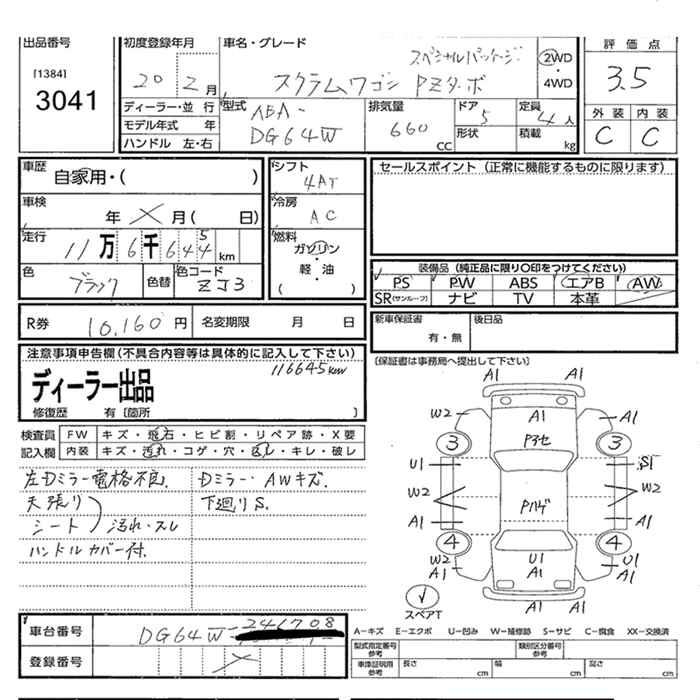 出品番号
[1384]
3041
初度登録年月
20 2月
車名・グレード
スペシャルパッケージ
スクラムワゴン PZターボ
2WD
・
4WD
評価点
3.5
外装 内装
C C
ディーラー・並行
モデル年式 年
ハンドル 左・右
型式
ABA-
DG64W
排気量
660
CC
ドア
5
形状
定員
4人
積載
kg
車歴
自家用・( )
車検
年 月( 日)
走行
11万6千645km
5
色
ブラック
色替
色コード
ZJ3
シフト
4AT
冷房
AC
燃料
ガソリン
・
軽・油
( )
セールスポイント (正常に機能するものに限ります)
装備品 (純正品に限り○印をつけてください)
PS PW ABS エアB AW
SR(サンルーフ) ナビ TV 本革
R券 10,160円 名変期限 月 日
新車保証書
有・無
後日品
(保証書は事務局へ提出して下さい)
注意事項申告欄(不具合内容等は具体的に記入して下さい)
116645km
ディーラー出品
修復歴 有 [箇所 ]
検査員 FW キズ・飛石・ヒビ割・リペア跡・X要
記入欄 内装 キズ・汚れ・コゲ・穴・スレ・キレ・破レ
左Dミラー電格不良. Dミラー・AWキズ.
天張り 下廻りS.
シート 汚れ・スレ
ハンドルカバー付.
A1 A1
W2 A1 A1
3 Pアセ 3
U1 S1
W2 W2
A1 Pハゲ A1
4 4
W2 U1 U1
A1 A1 A1
A1 A1
スペアT
車台番号 DG64W-246708
登録番号
A―キズ E―エクボ U―凹み W―補修跡 S―サビ C―腐食 XX―交換済
型式指定番号
参考
類別区分番号
参考
車庫証明用
参考
長さ cm 幅 cm 高さ cm